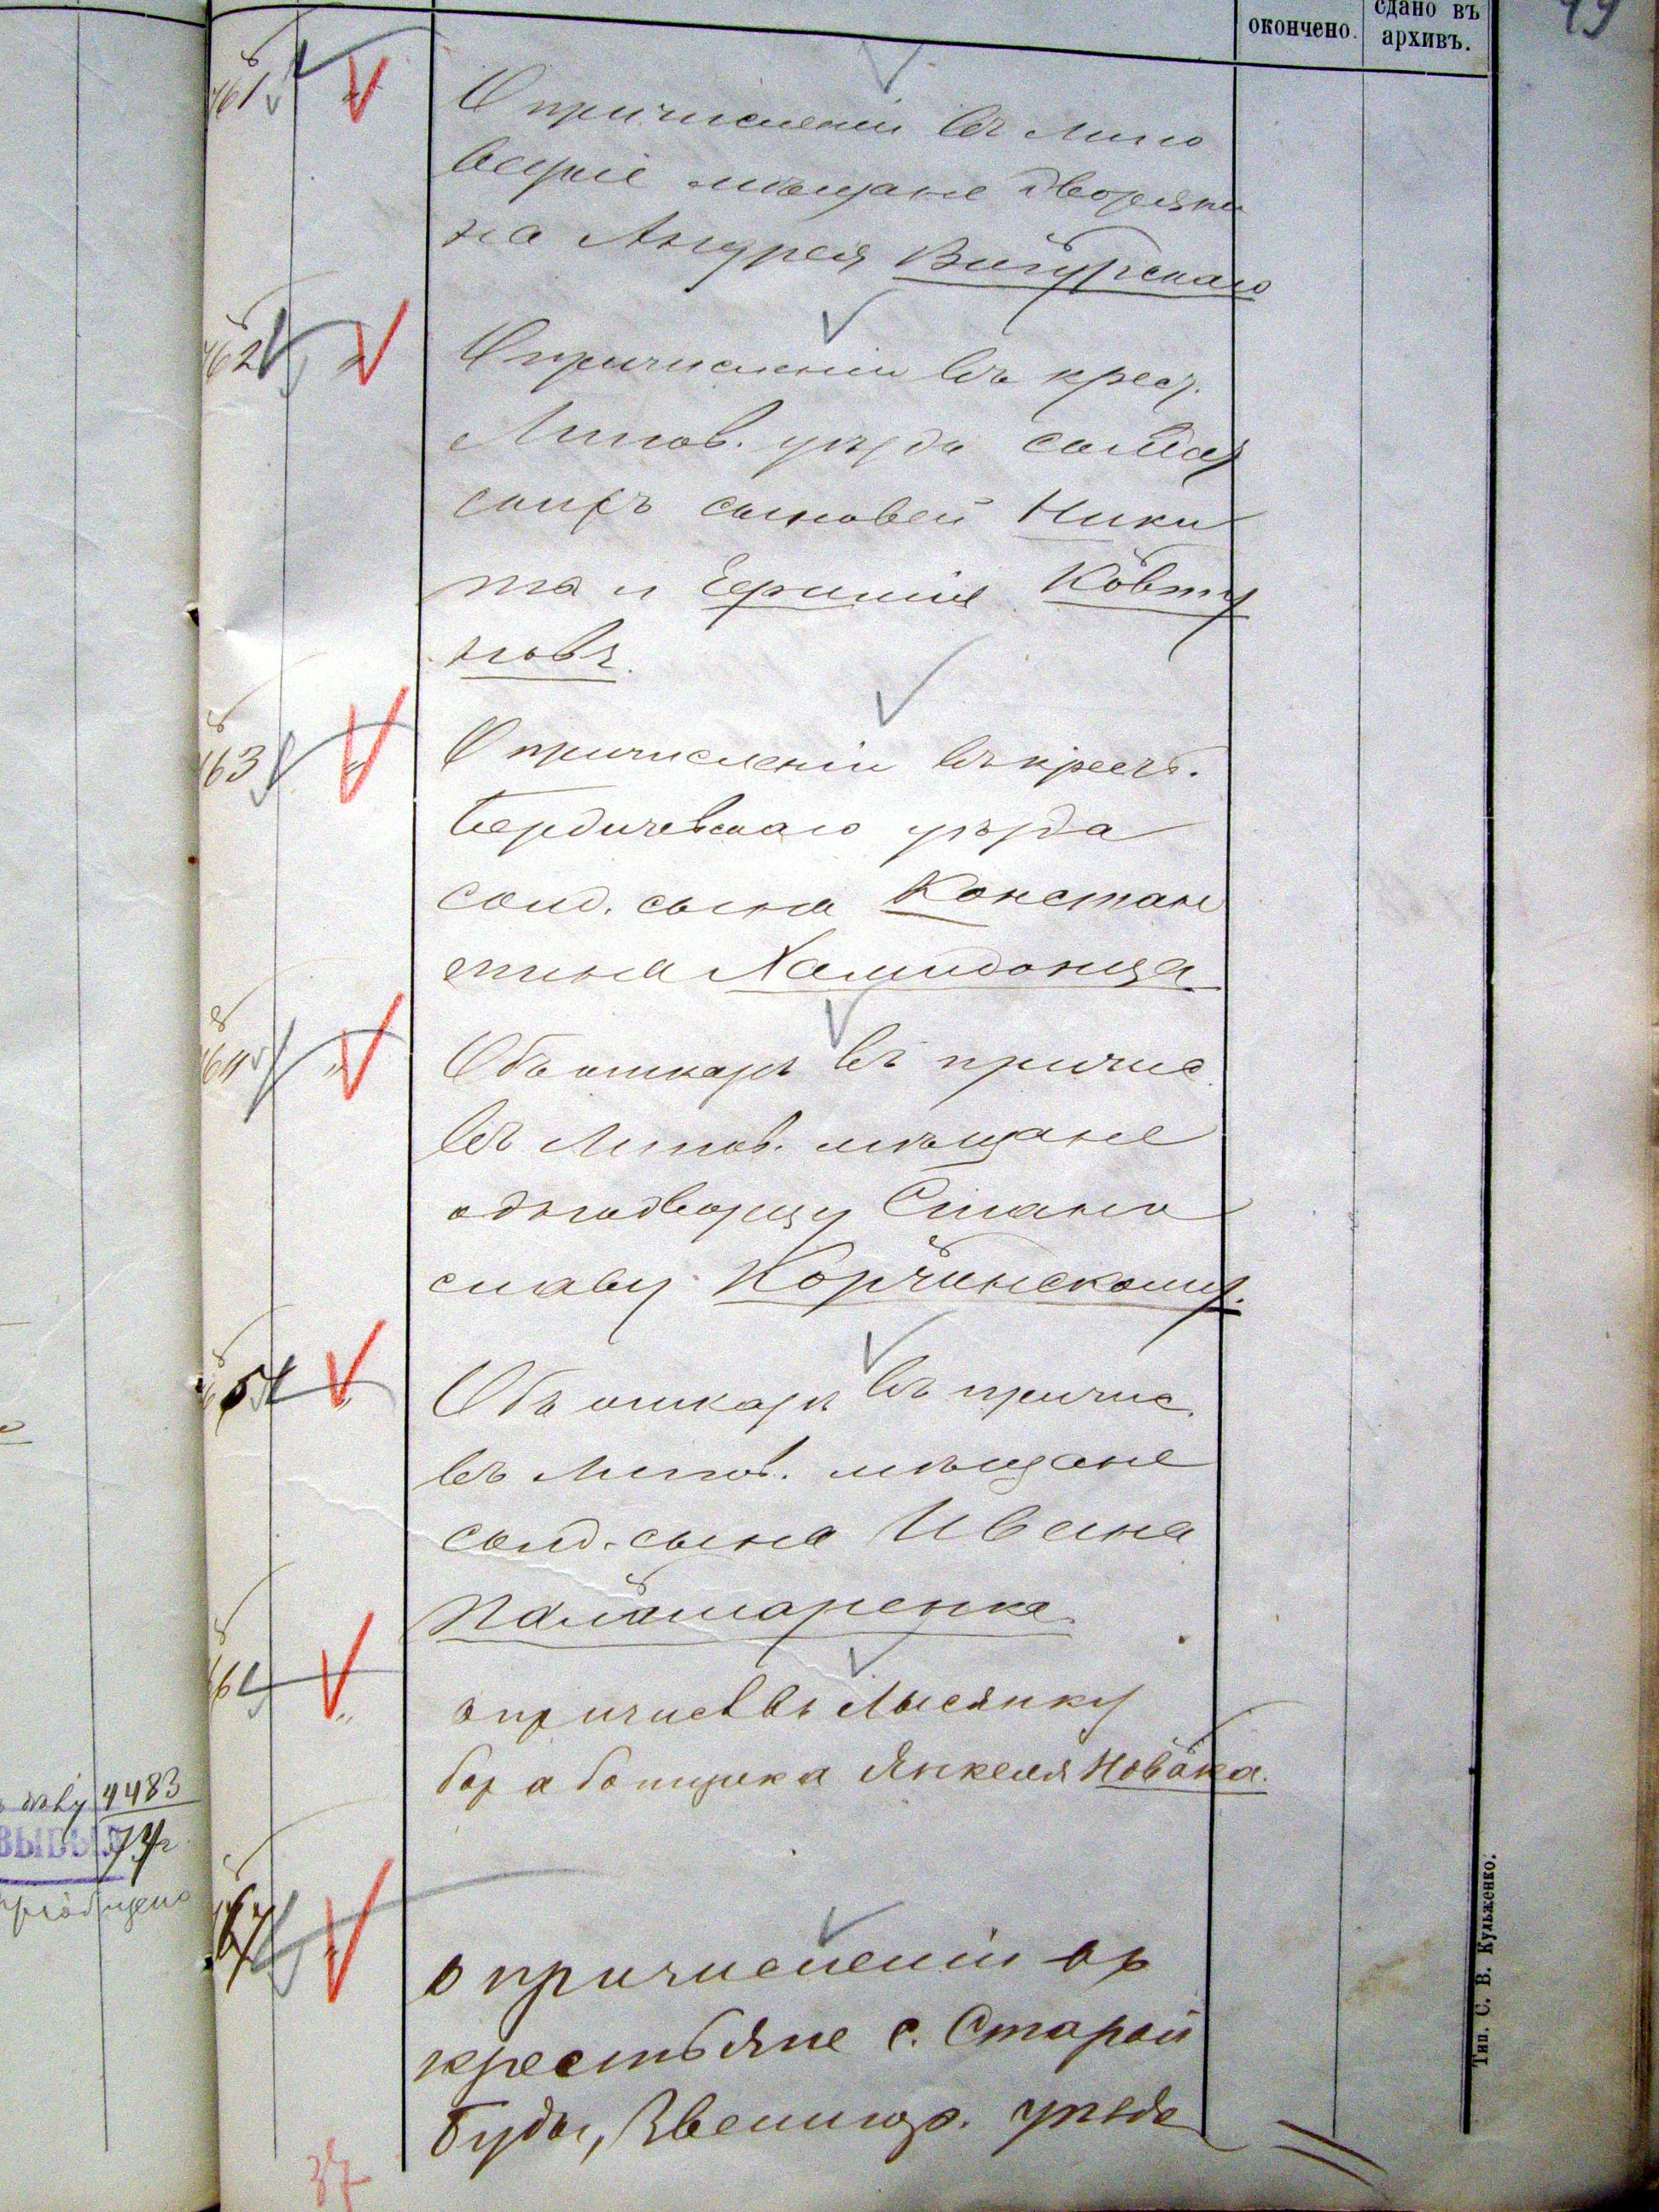 окончено.
сдано въ
архивъ.
49
461
О причисленіи въ Липо
вецкіе мѣщане дворяни
на Андрея
462
О причисленіи въ крест.
Липов. уѣзда солдат
скихъ сыновей Ники
та и Ефимія Ковту
новъ.
463
О причисленіи въ крест.
Бердичевскаго уѣзда
солд. сына Констан
тина
464
Объ отказѣ въ причис.
въ Липов. мѣщане
однодворцу Стани
славу Корчинскому.
465
Объ отказѣ въ причис.
въ Липов. мѣщане
солд. сына Ивана
Паламаренка.
466
о причис. въ Лысянку
Янкеля Новака.
467
о причисленіи въ
крестьяне с. Старой
Буды, Звенигор. уѣзда
37
4483
Тип. С. В. Кульженко.